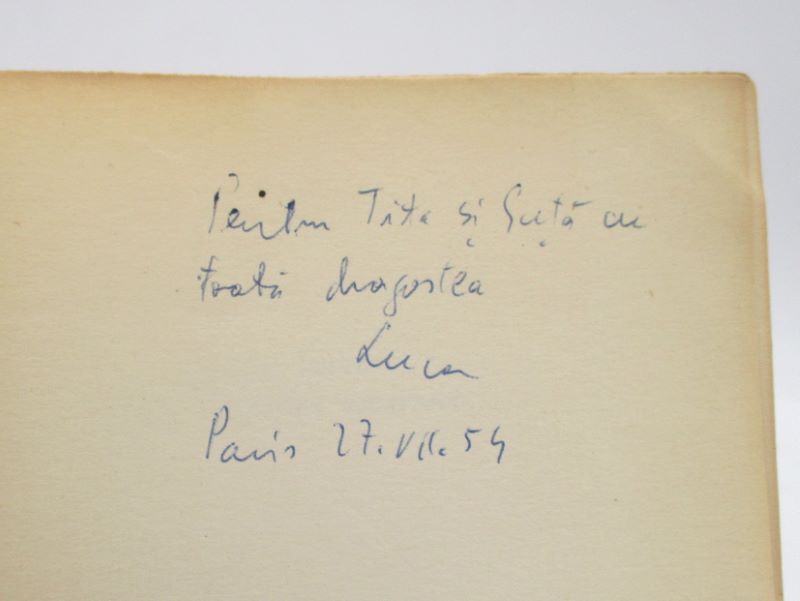 Pentru Tita și Guță cu
toată dragostea
Luca
Paris 27.VII.54